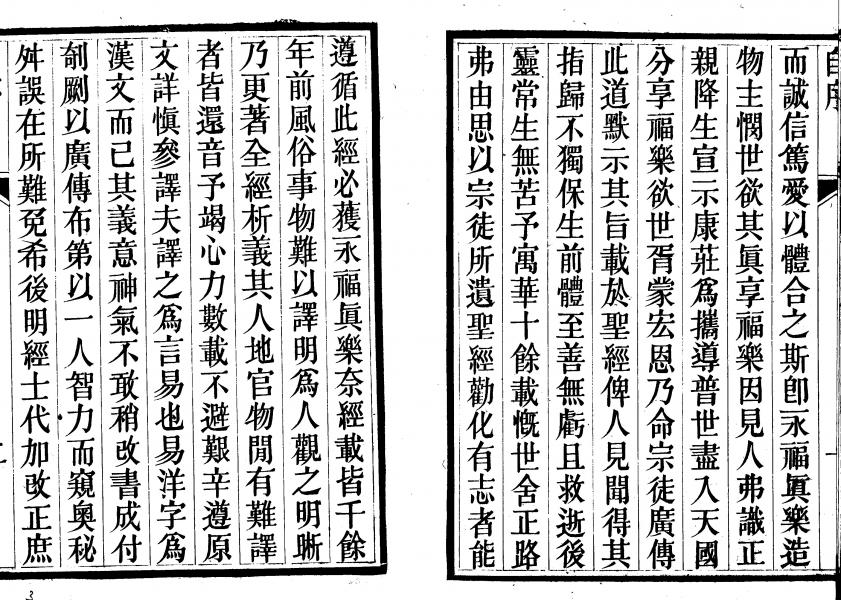 自序
而誠信篤愛以體合之斯卽永福眞樂造
物主憫世欲其眞享福樂因見人弗識正
親降生宣示康莊爲攜導普世盡入天國
分享福樂欲世胥蒙宏恩乃命宗徒廣傳
此道默示其旨載於聖經俾人見聞得其
指歸不獨保生前體至善無虧且救逝後
靈常生無苦予寓華十餘載慨世舍正路
弗由思以宗徒所遺聖經勸化有志者能
遵循此經必獲永福眞樂奈經載皆千餘
年前風俗事物難以譯明爲人觀之明晰
乃更著全經析義其人地官物閒有難譯
者皆還音予竭心力數載不避艱辛遵原
文詳愼參譯夫譯之爲言易也易洋字爲
漢文而已其義意神氣不敢稍改書成付
剞劂以廣傳布第以一人智力而窺奧秘
舛誤在所難免希後明經士代加改正庶
3